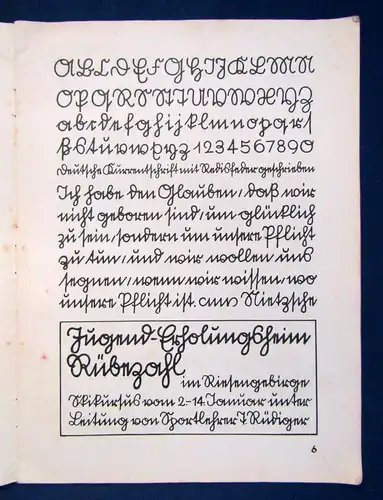 ABCDEFGHIJKLMN
OPQRSSTTUVWXYZ
abcdefghijklmnopqrſ
ßstuvwxyz 1234567890
Deutsche Kurrentschrift mit Redisfeder geschrieben
Ich habe den Glauben, daß wir
nicht geboren sind, um glücklich
zu sein, sondern um unsere Pflicht
zu tun, und wir wollen uns
segnen, wenn wir wissen, wo
unsere Pflicht ist. Nietzsche
Jugend-Erholungsheim
Rübezahl
im Riesengebirge
Skikursus vom 2-14. Januar unter
Leitung von Sportlehrer T. Rüdiger
6